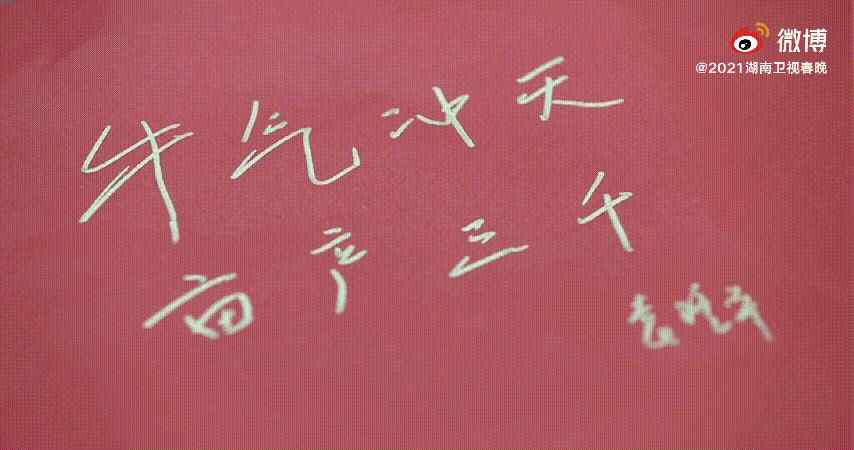 微博
@2021湖南卫视春晚
牛气冲天
亩产三千
袁隆平